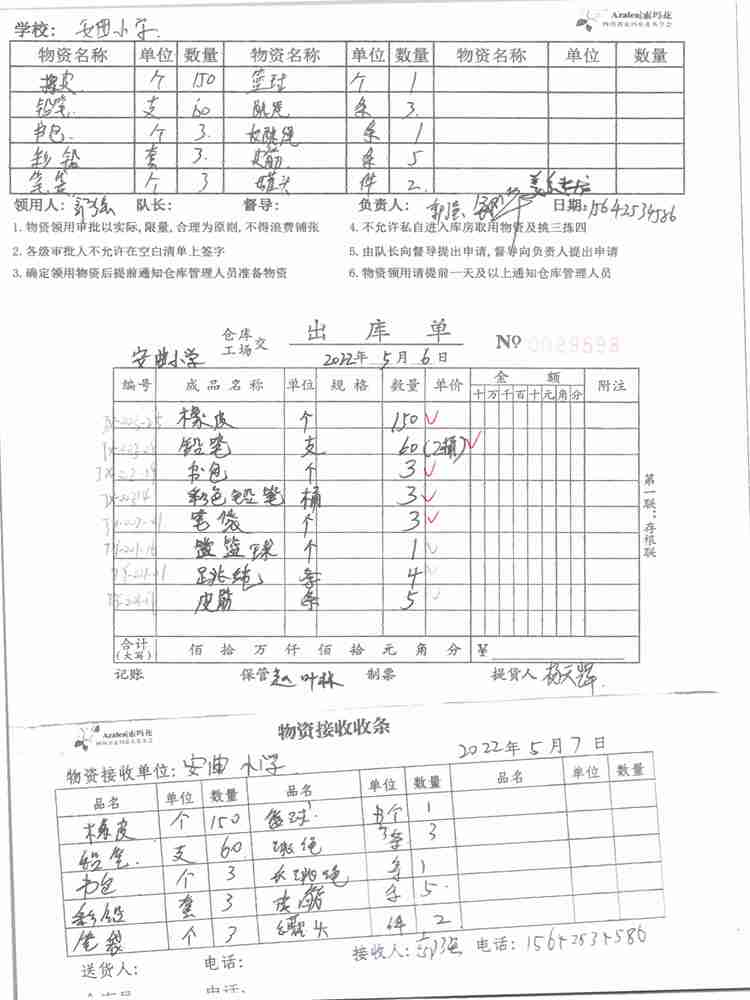 学校: 安曲小学. Azalea|索玛花
物资名称 单位 数量 物资名称 单位 数量 物资名称 单位 数量
橡皮 个 150 篮球 个 1
铅笔 支 60 跳绳 条 3.
书包 个 3. 长跳绳 条 1
彩铅 套 3. 皮筋 条 5
笔袋 个 3 罐头 件 2.
领用人: 队长: 督导: 负责人: 日期: 15642534586
1.物资领用审批以实际,限量,合理为原则,不得浪费铺张 4.不允许私自进入库房取用物资及挑三拣四
2.各级审批人不允许在空白清单上签字 5.由队长向督导提出申请,督导向负责人提出申请
3.确定领用物资后提前通知仓库管理人员准备物资 6.物资领用请提前一天及以上通知仓库管理人员
仓库 工场 交 出库单 № 0029898
安曲小学 2022年 5月 6日
编号 成品名称 单位 规格 数量 单价 金额 附注
十万千百十元角分
橡皮 个 150
铅笔 支 60(2桶)
书包 个 3
彩色铅笔 桶 3
笔袋 个 3
篮球 个 1
跳绳 条 4
皮筋 条 5
第一联:存根联
合计(大写) 佰 拾 万 仟 佰 拾 元 角 分 ¥
记账 保管 赵叶林 制票 提货人 杨天辉
Azalea|索玛花 物资接收收条
物资接收单位: 安曲小学 2022年5月7日
品名 单位 数量 品名 单位 数量 品名 单位 数量
橡皮 个 150 篮球 个 1
铅笔. 支 60 跳绳 条 3
书包 个 3 长跳绳 条 1
彩铅 套 3 皮筋 条 5.
笔袋 个 3 罐头 件 2
送货人: 电话: 接收人: 电话: 15642534586